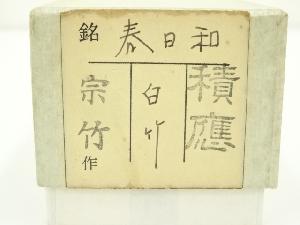 銘 春日和
積應
白竹
宗竹作